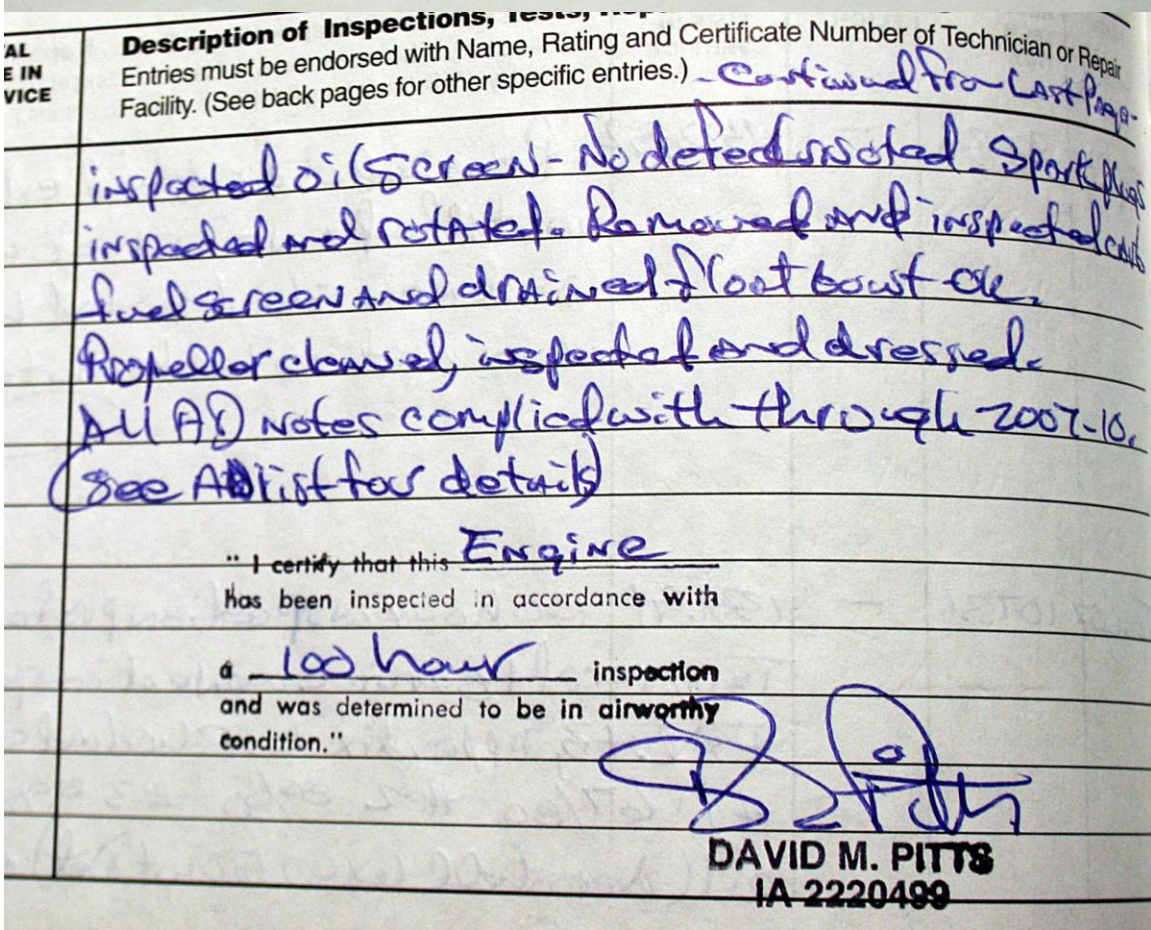 Description of Inspections, Tests, Rep
AL
E IN
VICE
Entries must be endorsed with Name, Rating and Certificate Number of Technician or Repair
Facility. (See back pages for other specific entries.) - Continued from Last Page-
inspected oil screen - No defects noted. Spark plugs
inspected and rotated. Removed and inspected carb
fuel screen AND drained float bowl - ok.
Propeller cleaned, inspected and dressed.
All AD notes complied with through 2007-10.
(see AD list for details)
" I certify that this Engine
has been inspected in accordance with
a 100 hour inspection
and was determined to be in airworthy
condition."
D Pitts
DAVID M. PITTS
IA 2220499